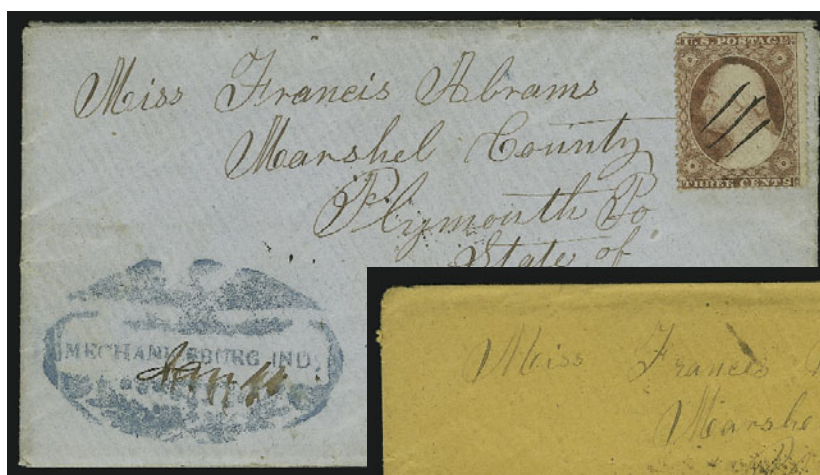 U.S. POSTAGE
THREE CENTS
Miss Francis Abrams
Marshel County
Plymouth Po
State of
MECHANICSBURG IND.
Miss Francis
Marshe